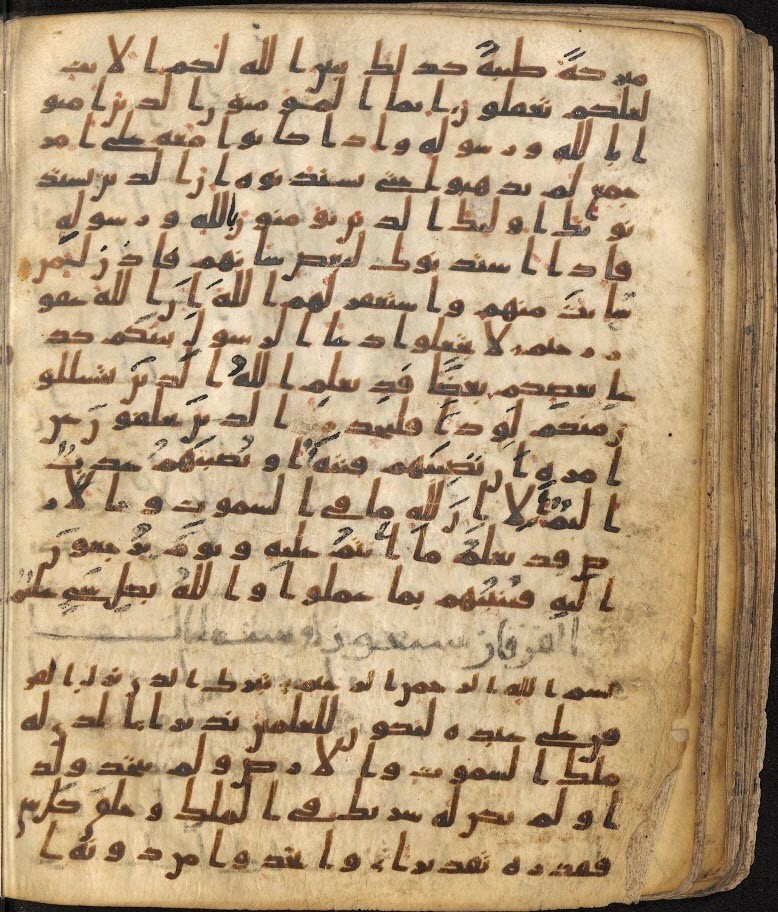 مبركة طيبة كذلك يبين الله لكم الايت
لعلكم تعقلون انما المومنون الذين امنو
ا بالله ورسوله واذا كانوا معه على امر
جمع لم يذهبوا حتى يستذنوه ان الذين يستذ
نونك اولئك الذين يومنون بالله ورسوله
فاذا استذنوك لبعض شانهم فاذن لمن
شات منهم واستغفر لهم الله ان الله غفو
ر رحيم لا تجعلوا دعا الرسول بينكم كد
عا بعضكم بعضا قد يعلم الله الذين يتسللو
ن منكم لواذا فليحذر الذين يخلفون عن
امره ان تصيبهم فتنة او يصيبهم عذب
اليم الا ان لله ما في السموت والار
ض قد يعلم ما انتم عليه ويوم يرجعون
اليه فينبيهم بما عملوا والله بكل شي عليم
الفرقان سبعون وسبع ايات
بسم الله الرحمن الرحيم تبرك الذي نزل الفر
قن على عبده ليكون للعلمين نذيرا الذي له
ملك السموت والارض ولم يتخذ ولد
ا ولم يكن له شريك في الملك وخلق كل شي
فقدره تقديرا واتخذوا من دونه ا